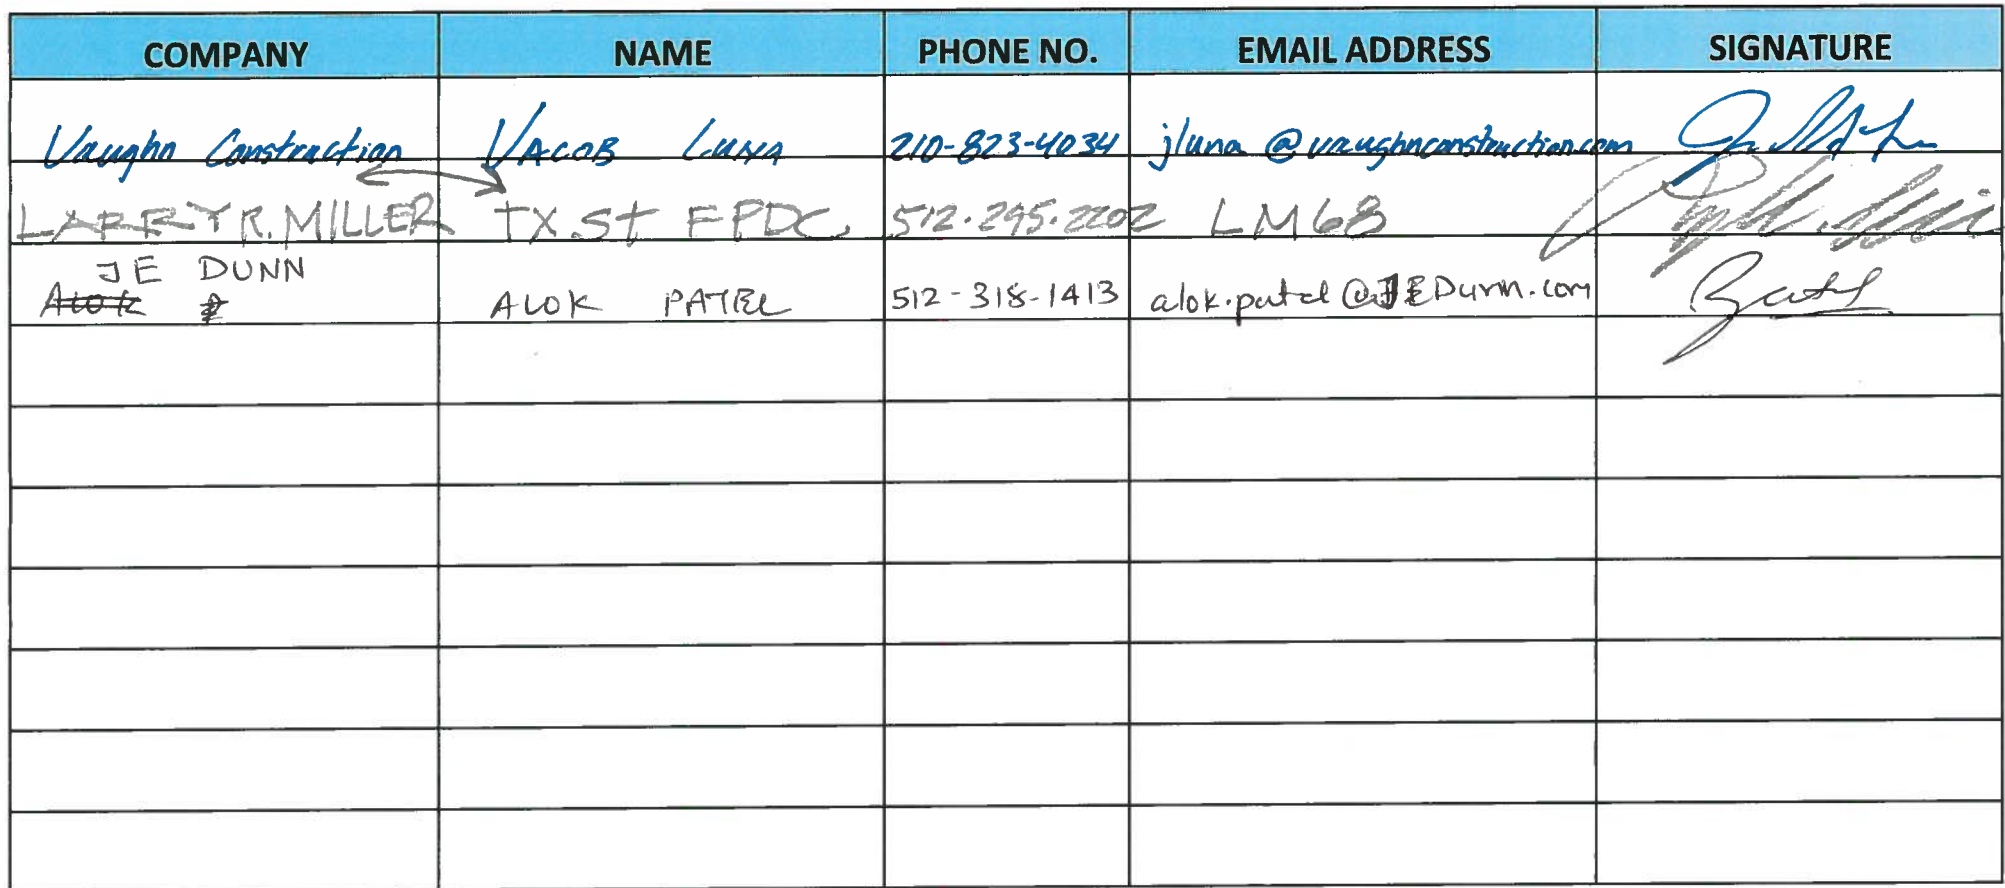 COMPANY NAME PHONE NO. EMAIL ADDRESS SIGNATURE
Vaughn Construction Jacob Luna 210-823-4034 jluna@vaughnconstruction.com
LARRY R. MILLER TX St FPDC 512.295.2202 LM68
JE DUNN
Alok ALOK PATEL 512-318-1413 alok.patel@JEDunn.com